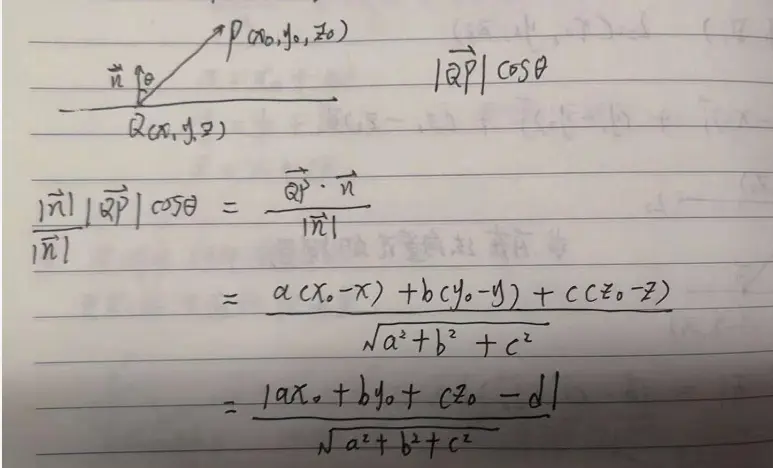 P(x₀, y₀, z₀)
n⃗ θ
|QP⃗| cosθ
Q(x, y, z)
|n⃗|/|n⃗| |QP⃗| cosθ = QP⃗ · n⃗ / |n⃗|
= a(x₀-x) + b(y₀-y) + c(z₀-z) / √a²+b²+c²
= |ax₀ + by₀ + cz₀ - d| / √a²+b²+c²